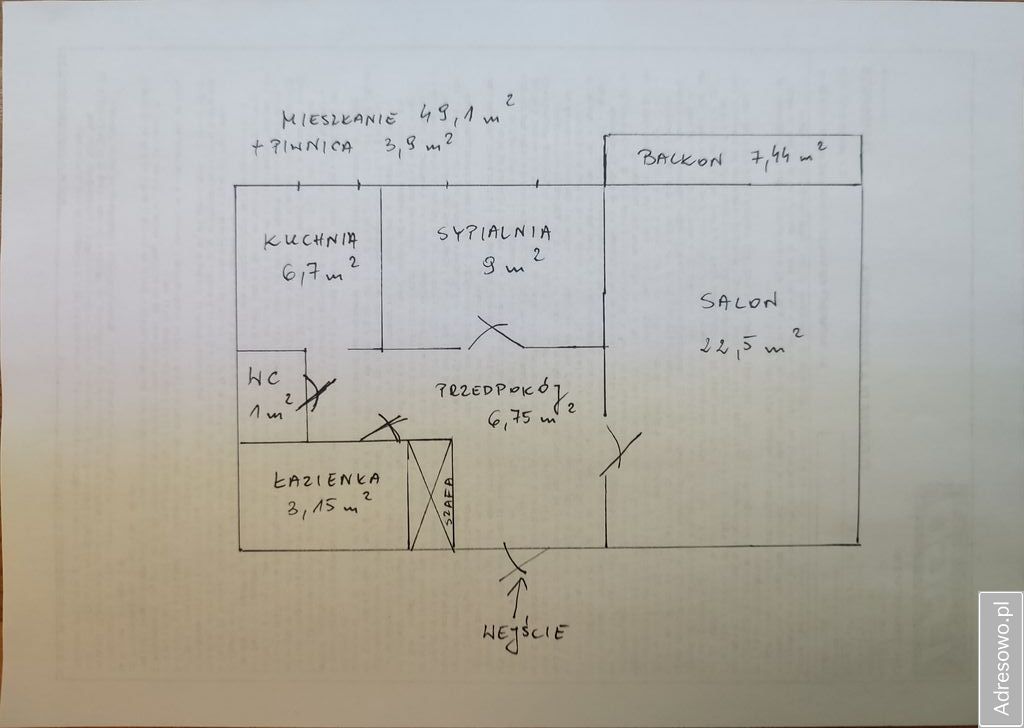 MIESZKANIE 49,1 m²
+ PIWNICA 3,9 m²
BALKON 7,44 m²
KUCHNIA
6,7 m²
SYPIALNIA
9 m²
SALON
22,5 m²
WC
1 m²
PRZEDPOKÓJ
6,75 m²
ŁAZIENKA
3,15 m²
SZAFA
WEJŚCIE
Adresowo.pl